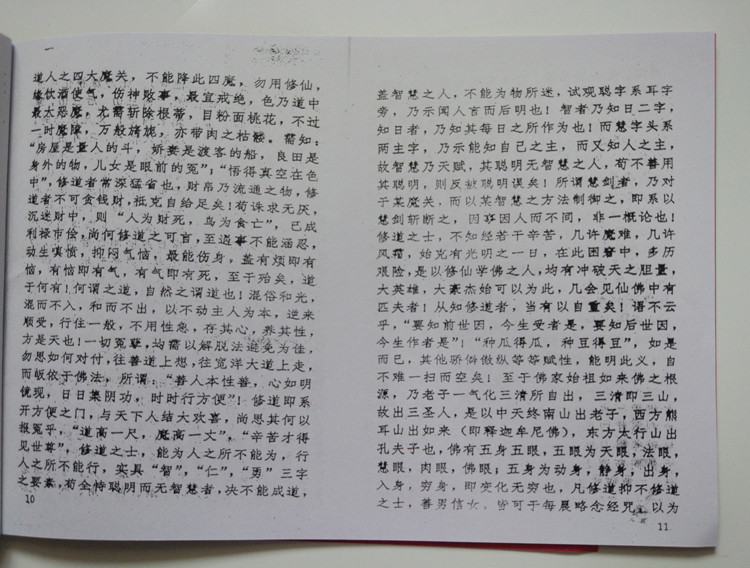 道人之四大魔关，不能降此四魔，勿用修仙，
缘饮酒使气，伤神败事，最宜戒绝，色乃道中
最大恶魔，尤需斩除根蒂，目粉面桃花，不过
一时魔障，万般旖旎，亦带肉之枯髅。需知：
“房屋是量人的斗，娇妻是渡客的船，良田是
身外的物，儿女是眼前的冤”；“悟得真空在色
中”，修道者常深猛省也，财帛乃流通之物，修
道者不可贪钱财，祗克自给足矣！苟诛求无厌，
沉迷财中，则 “人为财死，鸟为食亡”，已成
利禄市侩，尚何修道之可言，至迢事不能涵忍，
动生嗔愤，抑闷气恼，最能伤身，盖有烦即有
恼，有恼即有气，有气即有死，至于殆矣，道
于何有！何谓之道，自然之谓道也！混俗和光，
混而不入，和而不出，以不动主人为本，逆来
顺受，行住一般，不用性急，存其心，养其性，
方是天也！一切冤孽，均需以解脱法避免为佳，
勿思如何对付，往善道上想，往宽洋大道上走，
而皈依于佛法，所谓：“善人本性善，心如明
镜现，日日集阴功，时时行方便”！修道即系
开方便之门，与天下人结大欢喜，尚思其何以
报冤乎，“道高一尺，魔高一丈”，“辛苦才得
见世尊”，修道之士，能为人之所不能为，行
人之所不能行，实具“智”，“仁”，“勇”三字
之要素，苟全恃聪明而无智慧者，决不能成道，
10
盖智慧之人，不能为物所迷，试观聪字系耳字
旁，乃示闻人言而后明也！智者乃知日二字，
知日者，乃知其每日之所作为也！而慧字头系
两主字，乃示能知自己之主，而又知人之主，
故智慧乃天赋，其聪明无智慧之人，苟不善用
其聪明，则反被聪明误矣！所谓慧剑者，乃对
于某魔关，而以某智慧之方法制御之，即系以
慧剑斩断之，因事因人而不同，非一概论也！
修道之士，不知经若干辛苦，几许魔难，几许
风霜，始克有光明之一日，在此困窘中，多历
艰险，是以修仙学佛之人，均有冲破天之胆量，
大英雄，大豪杰始可以为此，几会见仙佛中有
匹夫者！从知修道者，当有以自重矣！语不云
乎，“要知前世因，今生受者是，要知后世因，
今生作者是”！“种瓜得瓜，种豆得豆”，如是
而已，其他骄傲纵等等赋性，能明此义，自
不难一扫而空矣！至于佛家始祖如来佛之根
源，乃老子一气化三清所自出，三清即三山，
故出三圣人，是以中天终南山出老子，西方熊
耳山出如来（即释迦牟尼佛），东方太行山出
孔夫子也，佛有五身五眼，五眼为天眼，法眼，
慧眼，肉眼，佛眼；五身为动身，静身，出身，
入身，穷身，即变化无穷也，凡修道抑不修道
之士，善男信女，皆可于每晨略念经咒，以为
11